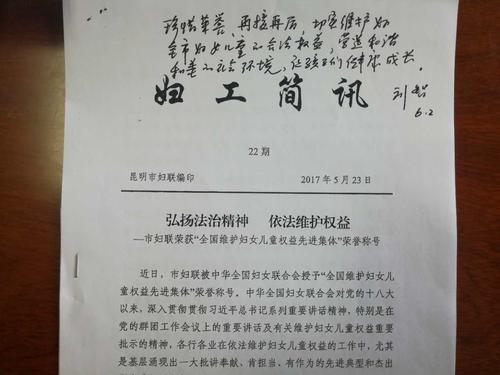 珍惜荣誉，再接再厉，切实维护好
全市妇女儿童的合法权益，营造和谐
和美的社会环境，让孩子们健康成长。
妇工简讯
刘智
6.2
22期
昆明市妇联编印
2017年5月23日
弘扬法治精神 依法维护权益
—市妇联荣获“全国维护妇女儿童权益先进集体”荣誉称号
近日，市妇联被中华全国妇女联合会授予“全国维护妇女儿
童权益先进集体”荣誉称号。中华全国妇女联合会对党的十八大
以来，深入贯彻贯彻习近平总书记系列重要讲话精神，特别是在
党的群团工作会议上的重要讲话及有关维护妇女儿童权益重要
批示的精神，各行各业在依法维护妇女儿童权益的工作中，尤其
是基层涌现出一大批讲奉献、肯担当、有作为的先进典型和杰出